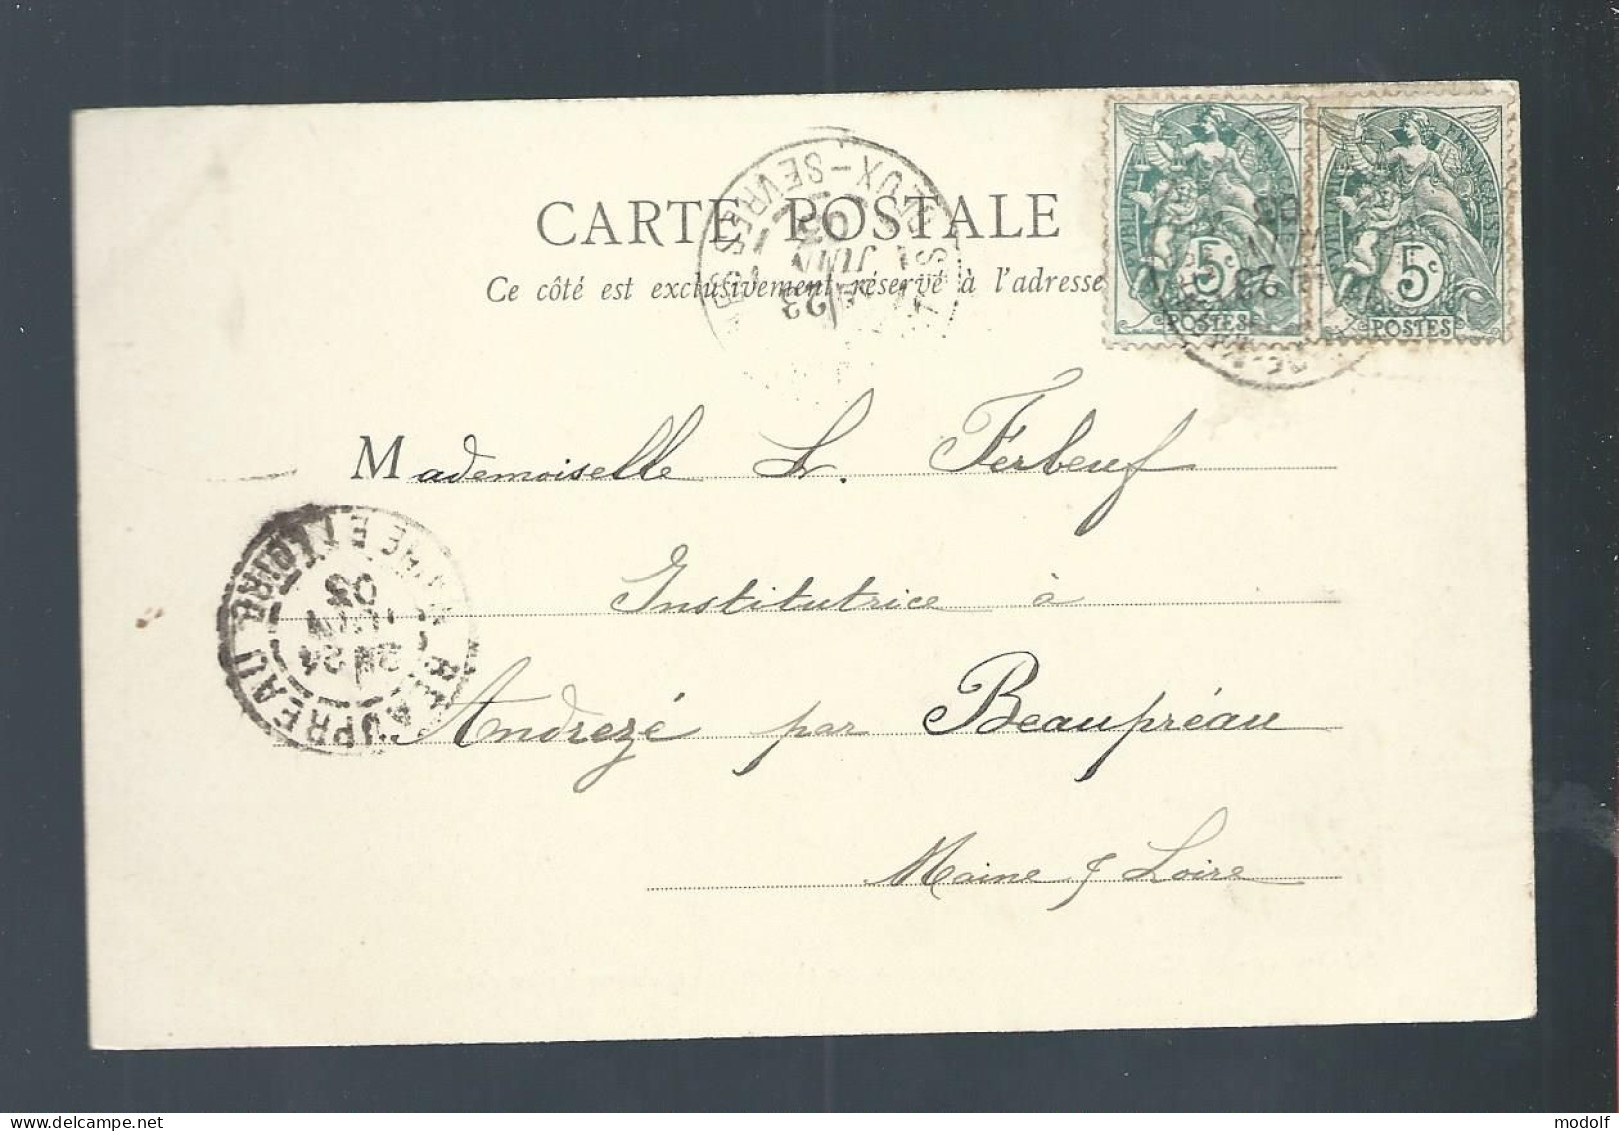 CARTE POSTALE
Ce côté est exclusivement réservé à l'adresse
DEUX-SEVRES
JUIN
23
RÉPUBLIQUE FRANÇAISE
5c
POSTES
FRANÇAISE
5c
POSTES
23
Mademoiselle L. Ferbeuf
Institutrice à
Andrezé par Beaupréau
Maine & Loire
BEAUPREAU
MAINE ET LOIRE
24
JUIN
03
modolf